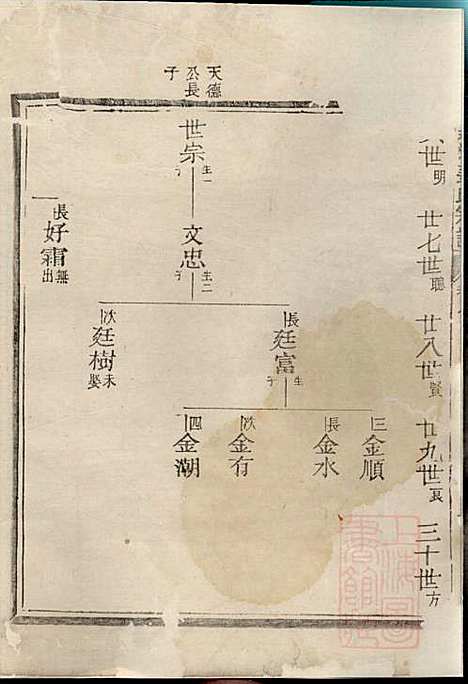 世明
廿七世聰
廿八世賢
廿九世良
三十世方
天德
公長
子
世宗
生一子
文忠
生二子
長廷富
生子
次廷樹未娶
三金順
長金水
次金有
四金潮
長好霜無出
上海圖書館藏